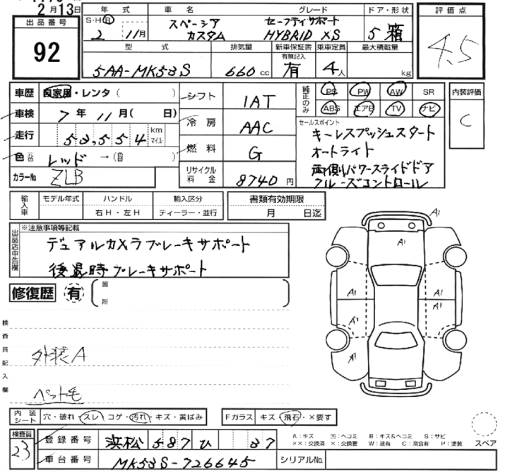 2月13日
出品番号
92
S・H・R 年 車名 グレード ドア・形状
2 11月 スペーシア カスタム セーフティサポート HYBRID XS 5 箱
評価点
4.5
型式 排気量 新車保証書 乗車定員 最大積載量
有無記入
5AA-MK53S 660cc 有 4人 kg
車歴 自家用・レンタ( )
車検 7年11月( 日)
走行 53,554 km マイル
色 レッド→( )
カラーNo ZLB
シフト 1AT
冷房 AAC
燃料 G
リサイクル料金 8740円
純正のみ PS PW AW SR
ABS エアB TV ナビ
内装評価
C
セールスポイント
キーレスプッシュスタート
オートライト
両側パワースライドドア
クルーズコントロール
輸入車 モデル年式 ハンドル 輸入区分 書類有効期限
右H・左H ディーラー・並行 月 日迄
出品店申告欄
※注意事項等記載
デュアルカメラブレーキサポート
後退時ブレーキサポート
修復歴 有 ( 箇所
検査員記入欄
外装A
ペット毛
A1 A1
A1 A1 A1
A1
内装シート 穴・破れ・スレ・コゲ・汚れ・キズ・黄ばみ Fガラス キズ・飛石・×要す
A:キズ U:ヘコミ B:キズ&ヘコミ S:サビ
スペア
検査員
23
登録番号 浜松 587 ひ 37
車台番号 MK53S-726645 シリアルNo.